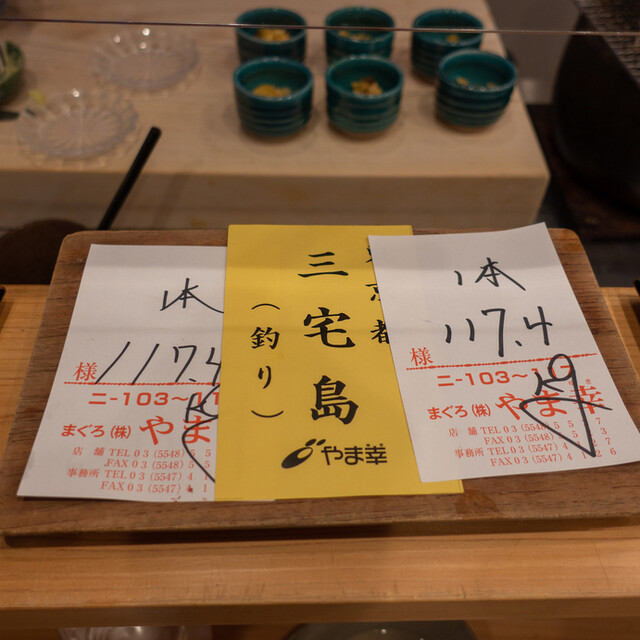 1本
様 117.4
ニ-103~
まぐろ(株)やま
店舗 TEL 03 (5548) 5
FAX 03 (5548) 5
事務所 TEL 03 (5547) 4
FAX 03 (5547) 1
京都
三宅島
(釣り)
やま幸
1本
様 117.4
ニ-103~10
まぐろ(株)やま幸
店舗 TEL 03 (5548) 5
FAX 03 (5548) 5
事務所 TEL 03 (5547) 4
FAX 03 (5547) 1